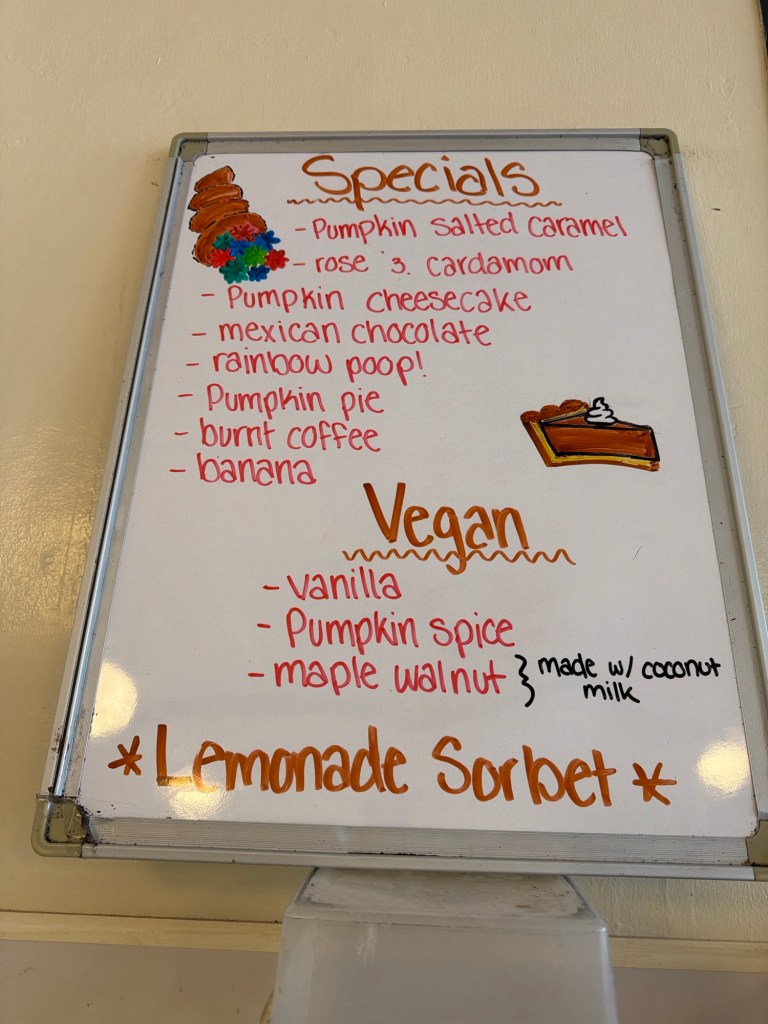 Specials
- Pumpkin salted caramel
- rose & cardamom
- Pumpkin cheesecake
- mexican chocolate
- rainbow poop!
- Pumpkin pie
- burnt coffee
- banana
Vegan
- vanilla
- Pumpkin spice
- maple walnut } made w/ coconut
milk
*Lemonade Sorbet*